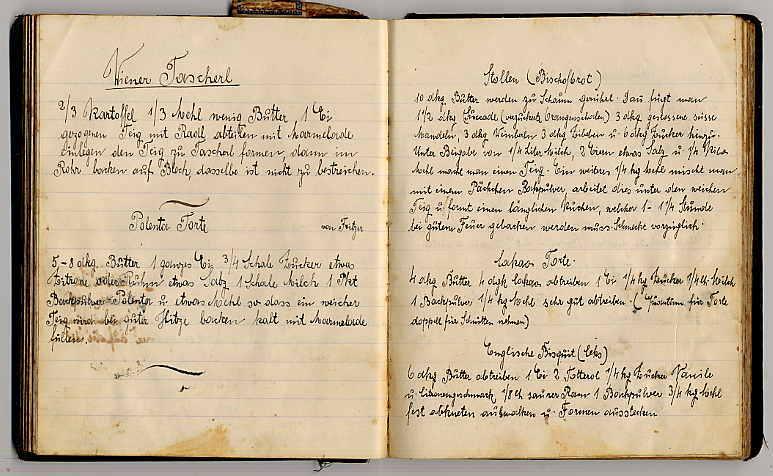 Wiener Tascherl
2/3 Kartoffel 1/3 Mehl wenig Butter 1 Ei
gezogenen Teig mit Radl abteilen mit Marmelade
einlegen den Teig zu Tascherl formen, dann im
Rohr backen auf Blech, dasselbe ist nicht zu bestreichen.
Polenta Torte von
5-8 dkg. Butter 1 ganzes Ei 3/4 Schale Zucker etwas
oder Ruhm etwas Salz 1 Schale Milch 1 Pkt
Backpulver Polenta u etwas Mehl so dass ein weicher
Teig wird bei guter Hitze backen kalt mit Marmelade
füllen.
Stollen (Bischofbrot)
10 dkg Butter werden zu Schaum gerührt. Dau fügt man
1 1/2 dkg (Sucade (verzuckerte Orangenschalen) 3 dkg süsse
Mandeln, 3 dkg Weinberen 3 dkg Zibeben u 6 dkg Zucker hinzu.
Unter Beigabe von 1/4 Liter Milch, 2 Eiern etwas Salz u 1/4 Kilo
Mehl macht man einen Teig. Ein weiteres 1/4 kg Mehl mischt man
mit einem Päckchen Backpulver, arbeitet dies unter den weichen
Teig u formt einen länglichen Kuchen, welcher 1- 1 1/4 Stunde
bei gutem Feuer gebacken werden muss. Schmeckt vorzüglich.
Cakao Torte.
4 dkg Butter 4 dkg Cakao abtreiben 1 Ei 1/4 kg Zucker 1/4 Lt. Milch
1 Backpulver 1/4 kg Mehl sehr gut abtreiben. ( Quantum für Torte
doppelt für Schnitten nehmen)
Englische Bisquit (Keks)
6 dkg Butter abtreiben 1 Ei 2 Totterol 1/4 kg Zucker Vanile
u. Citronengeschmack, 1/8 lt saurer Ram 1 Backpulver 3/4 kg Mehl
fest abkneten auswalken u. Formen ausstechen